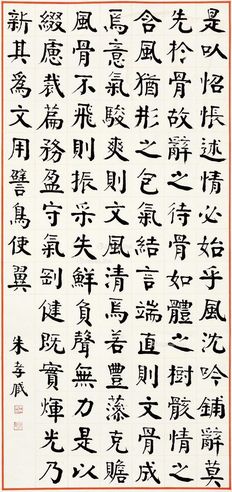 是以怊悵述情必始乎風沈吟鋪辭莫
先於骨故辭之待骨如體之樹骸情之
含風猶形之包氣結言端直則文骨成
焉意氣駿爽則文風清焉善豐藻克贍
風骨不飛則振采失鮮負聲無力是以
綴慮裁篇務盈守氣剛健既實煇光乃
新其爲文用譬鳥使翼
朱孝臧